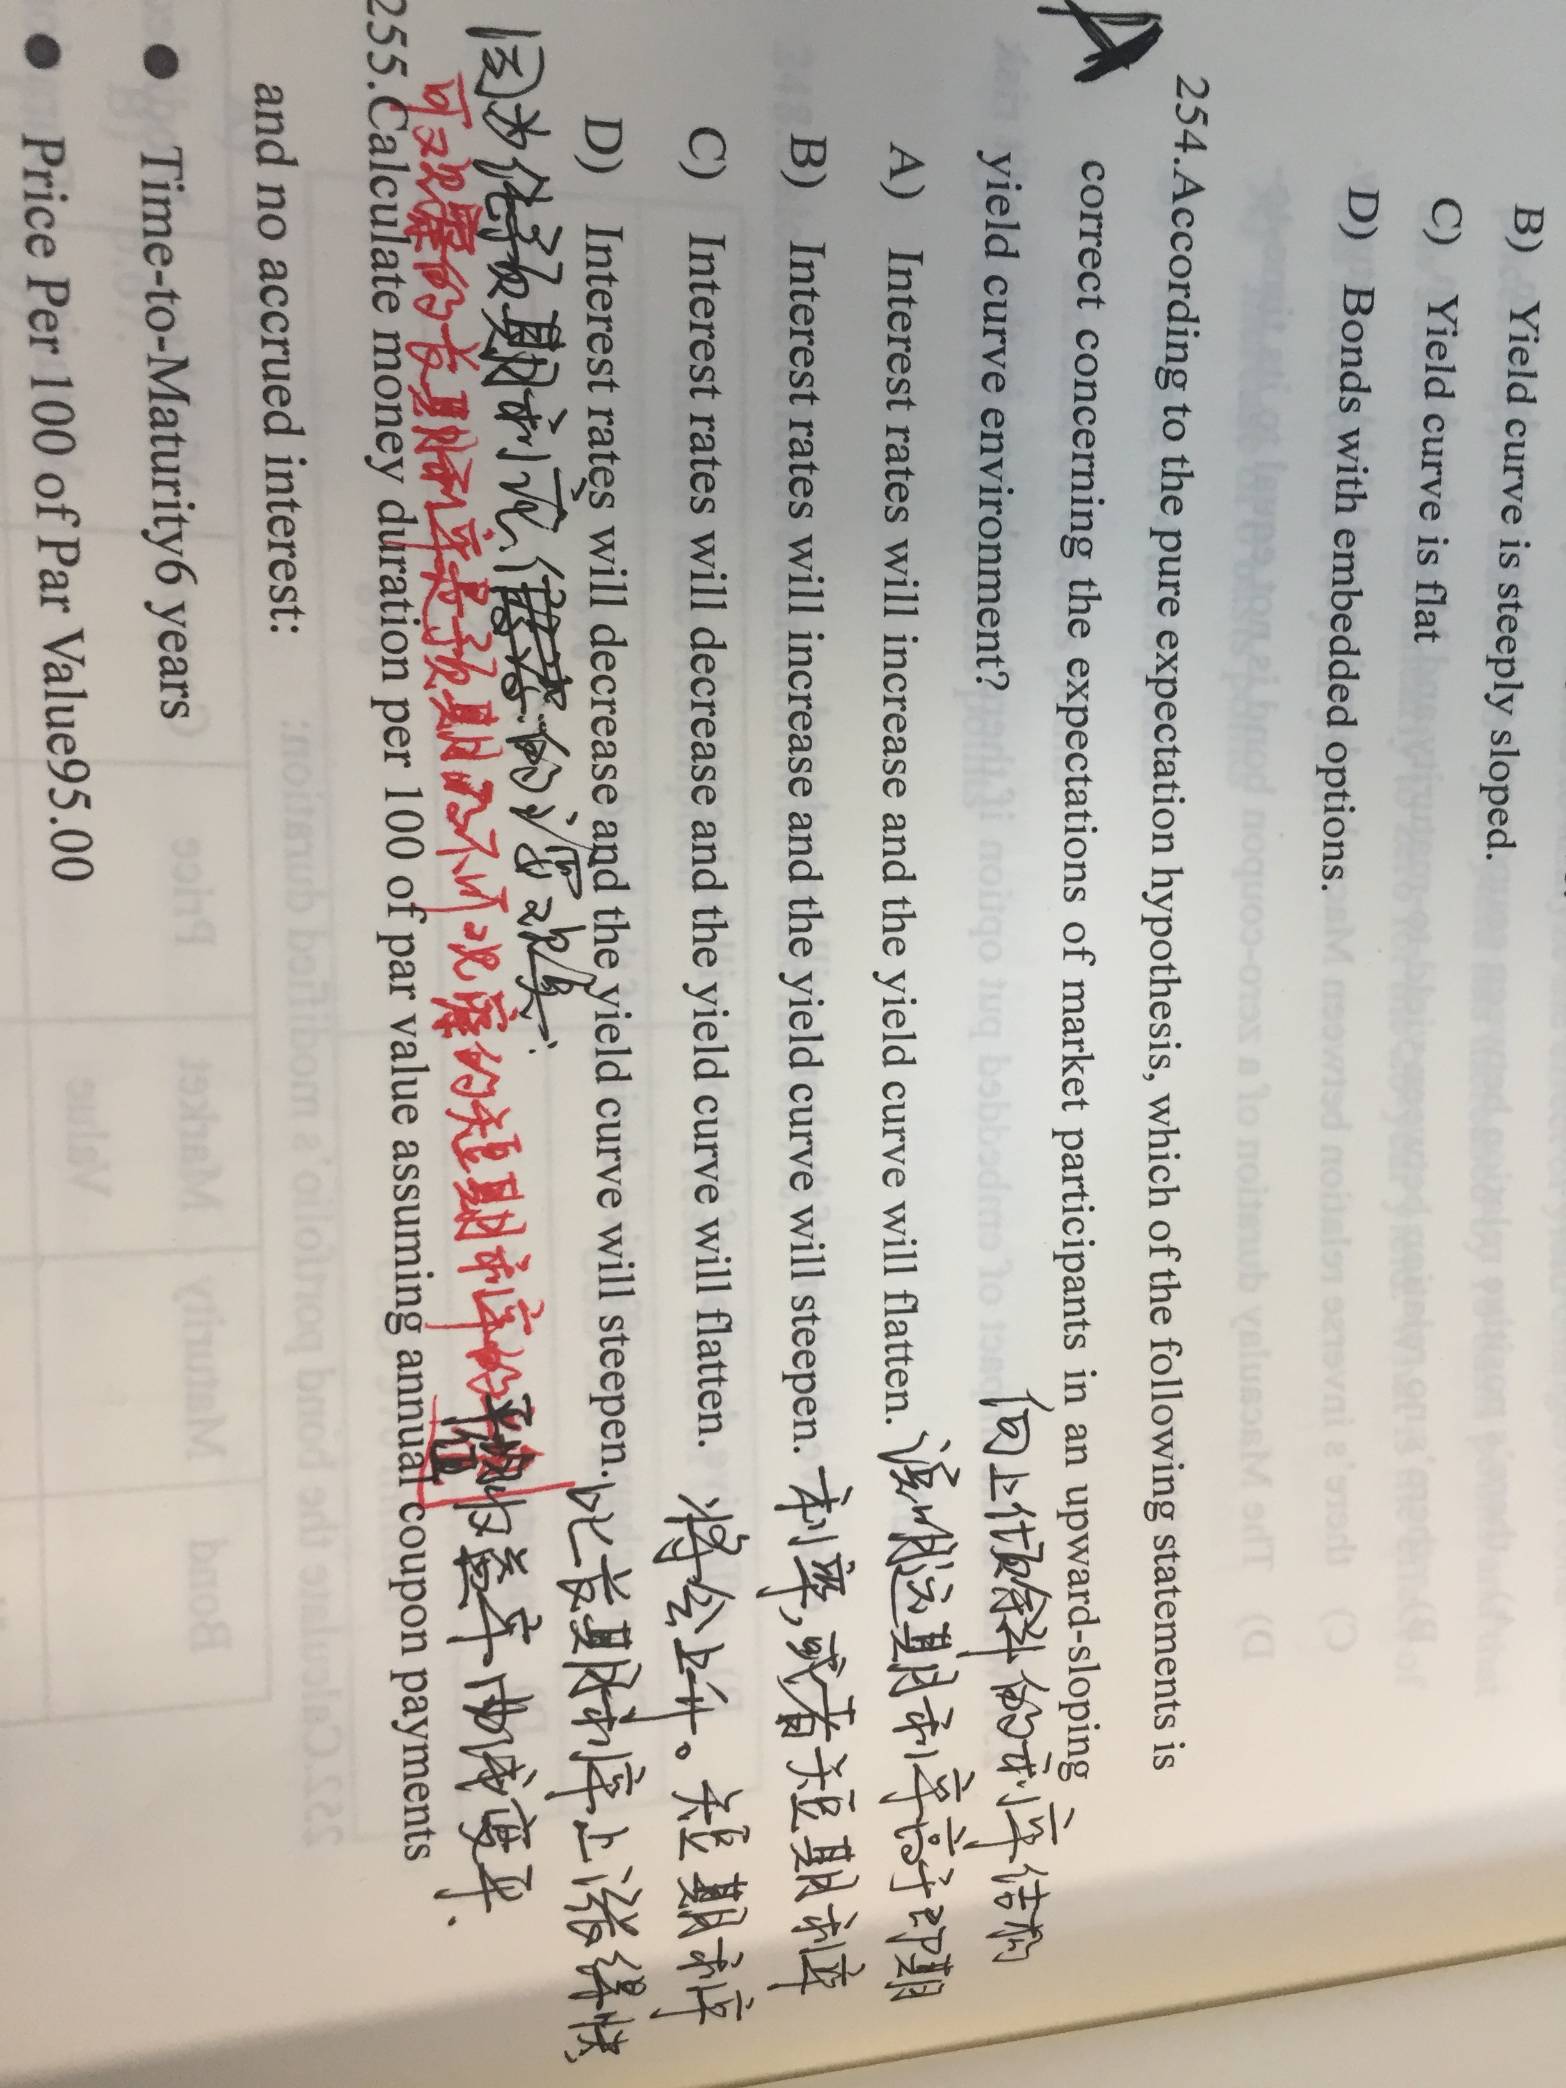 B) Yield curve is steeply sloped.
C) Yield curve is flat
D) Bonds with embedded options.
A
254.According to the pure expectation hypothesis, which of the following statements is
correct concerning the expectations of market participants in an upward-sloping
yield curve environment?
向上倾斜的利率结构
A) Interest rates will increase and the yield curve will flatten.
说明远期利率高于即期
B) Interest rates will increase and the yield curve will steepen.
利率,或者短期利率
C) Interest rates will decrease and the yield curve will flatten.
将会上升。短期利率
D) Interest rates will decrease and the yield curve will steepen.
比长期利率上涨得快
因为
收益率曲线变平、
可观察的长期利率是预期的不可观察的短期利率的平均值
255.Calculate money duration per 100 of par value assuming annual coupon payments
and no accrued interest:
● Time-to-Maturity6 years
● Price Per 100 of Par Value95.00